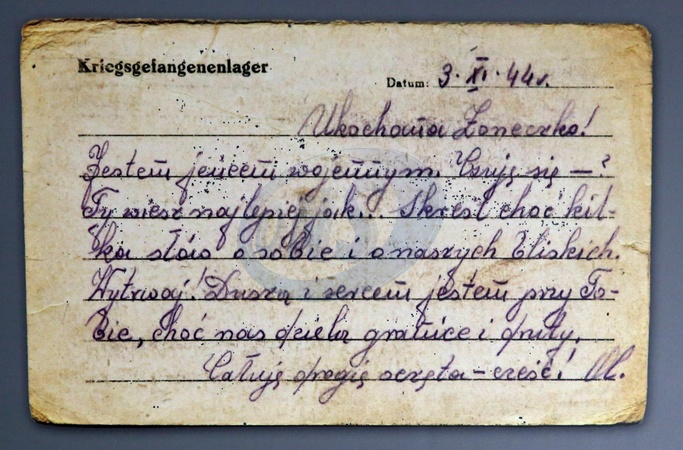 Kriegsgefangenenlager
Datum: 3. XI. 44 r.
Ukochana Żoneczko!
Jestem jeńcem wojennym. Czuję się – ?
Ty wiesz najlepiej jak... Skreśl choć kil-
ka słów o sobie i o naszych bliskich.
Wytrwaj! Duszą i sercem jestem przy To-
bie, choć nas dzielą granice i druty.
Całuję drogie oczęta – cześć!